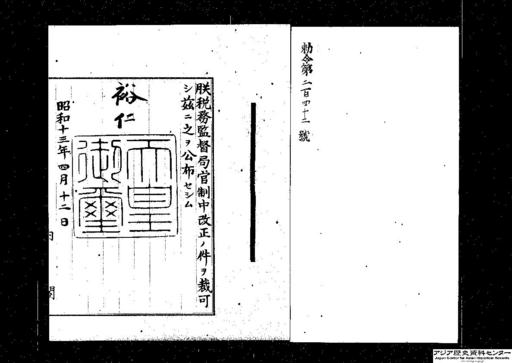 勅令第二百四十二號
朕税務監督局官制中改正ノ件ヲ裁可
シ茲ニ之ヲ公布セシム
裕仁
天皇
御璽
昭和十三年四月十二日
内閣
アジア歴史資料センター
Japan Center for Asian Historical Records